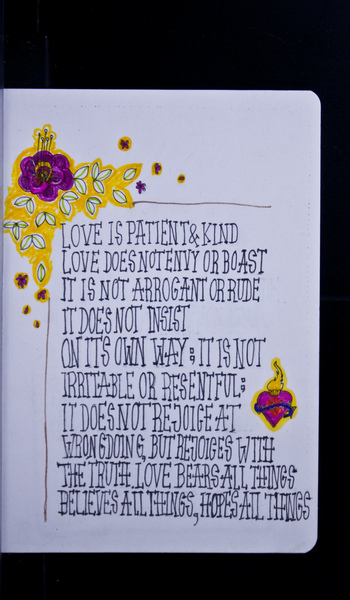 LOVE IS PATIENT & KIND
LOVE DOES NOT ENVY OR BOAST
IT IS NOT ARROGANT OR RUDE
IT DOES NOT INSIST
ON IT'S OWN WAY; IT IS NOT
IRRITABLE OR RESENTFUL;
IT DOES NOT REJOICE AT
WRONGDOING, BUT REJOICES WITH
THE TRUTH. LOVE BEARS ALL THINGS
BELIEVES ALL THINGS, HOPES ALL THINGS